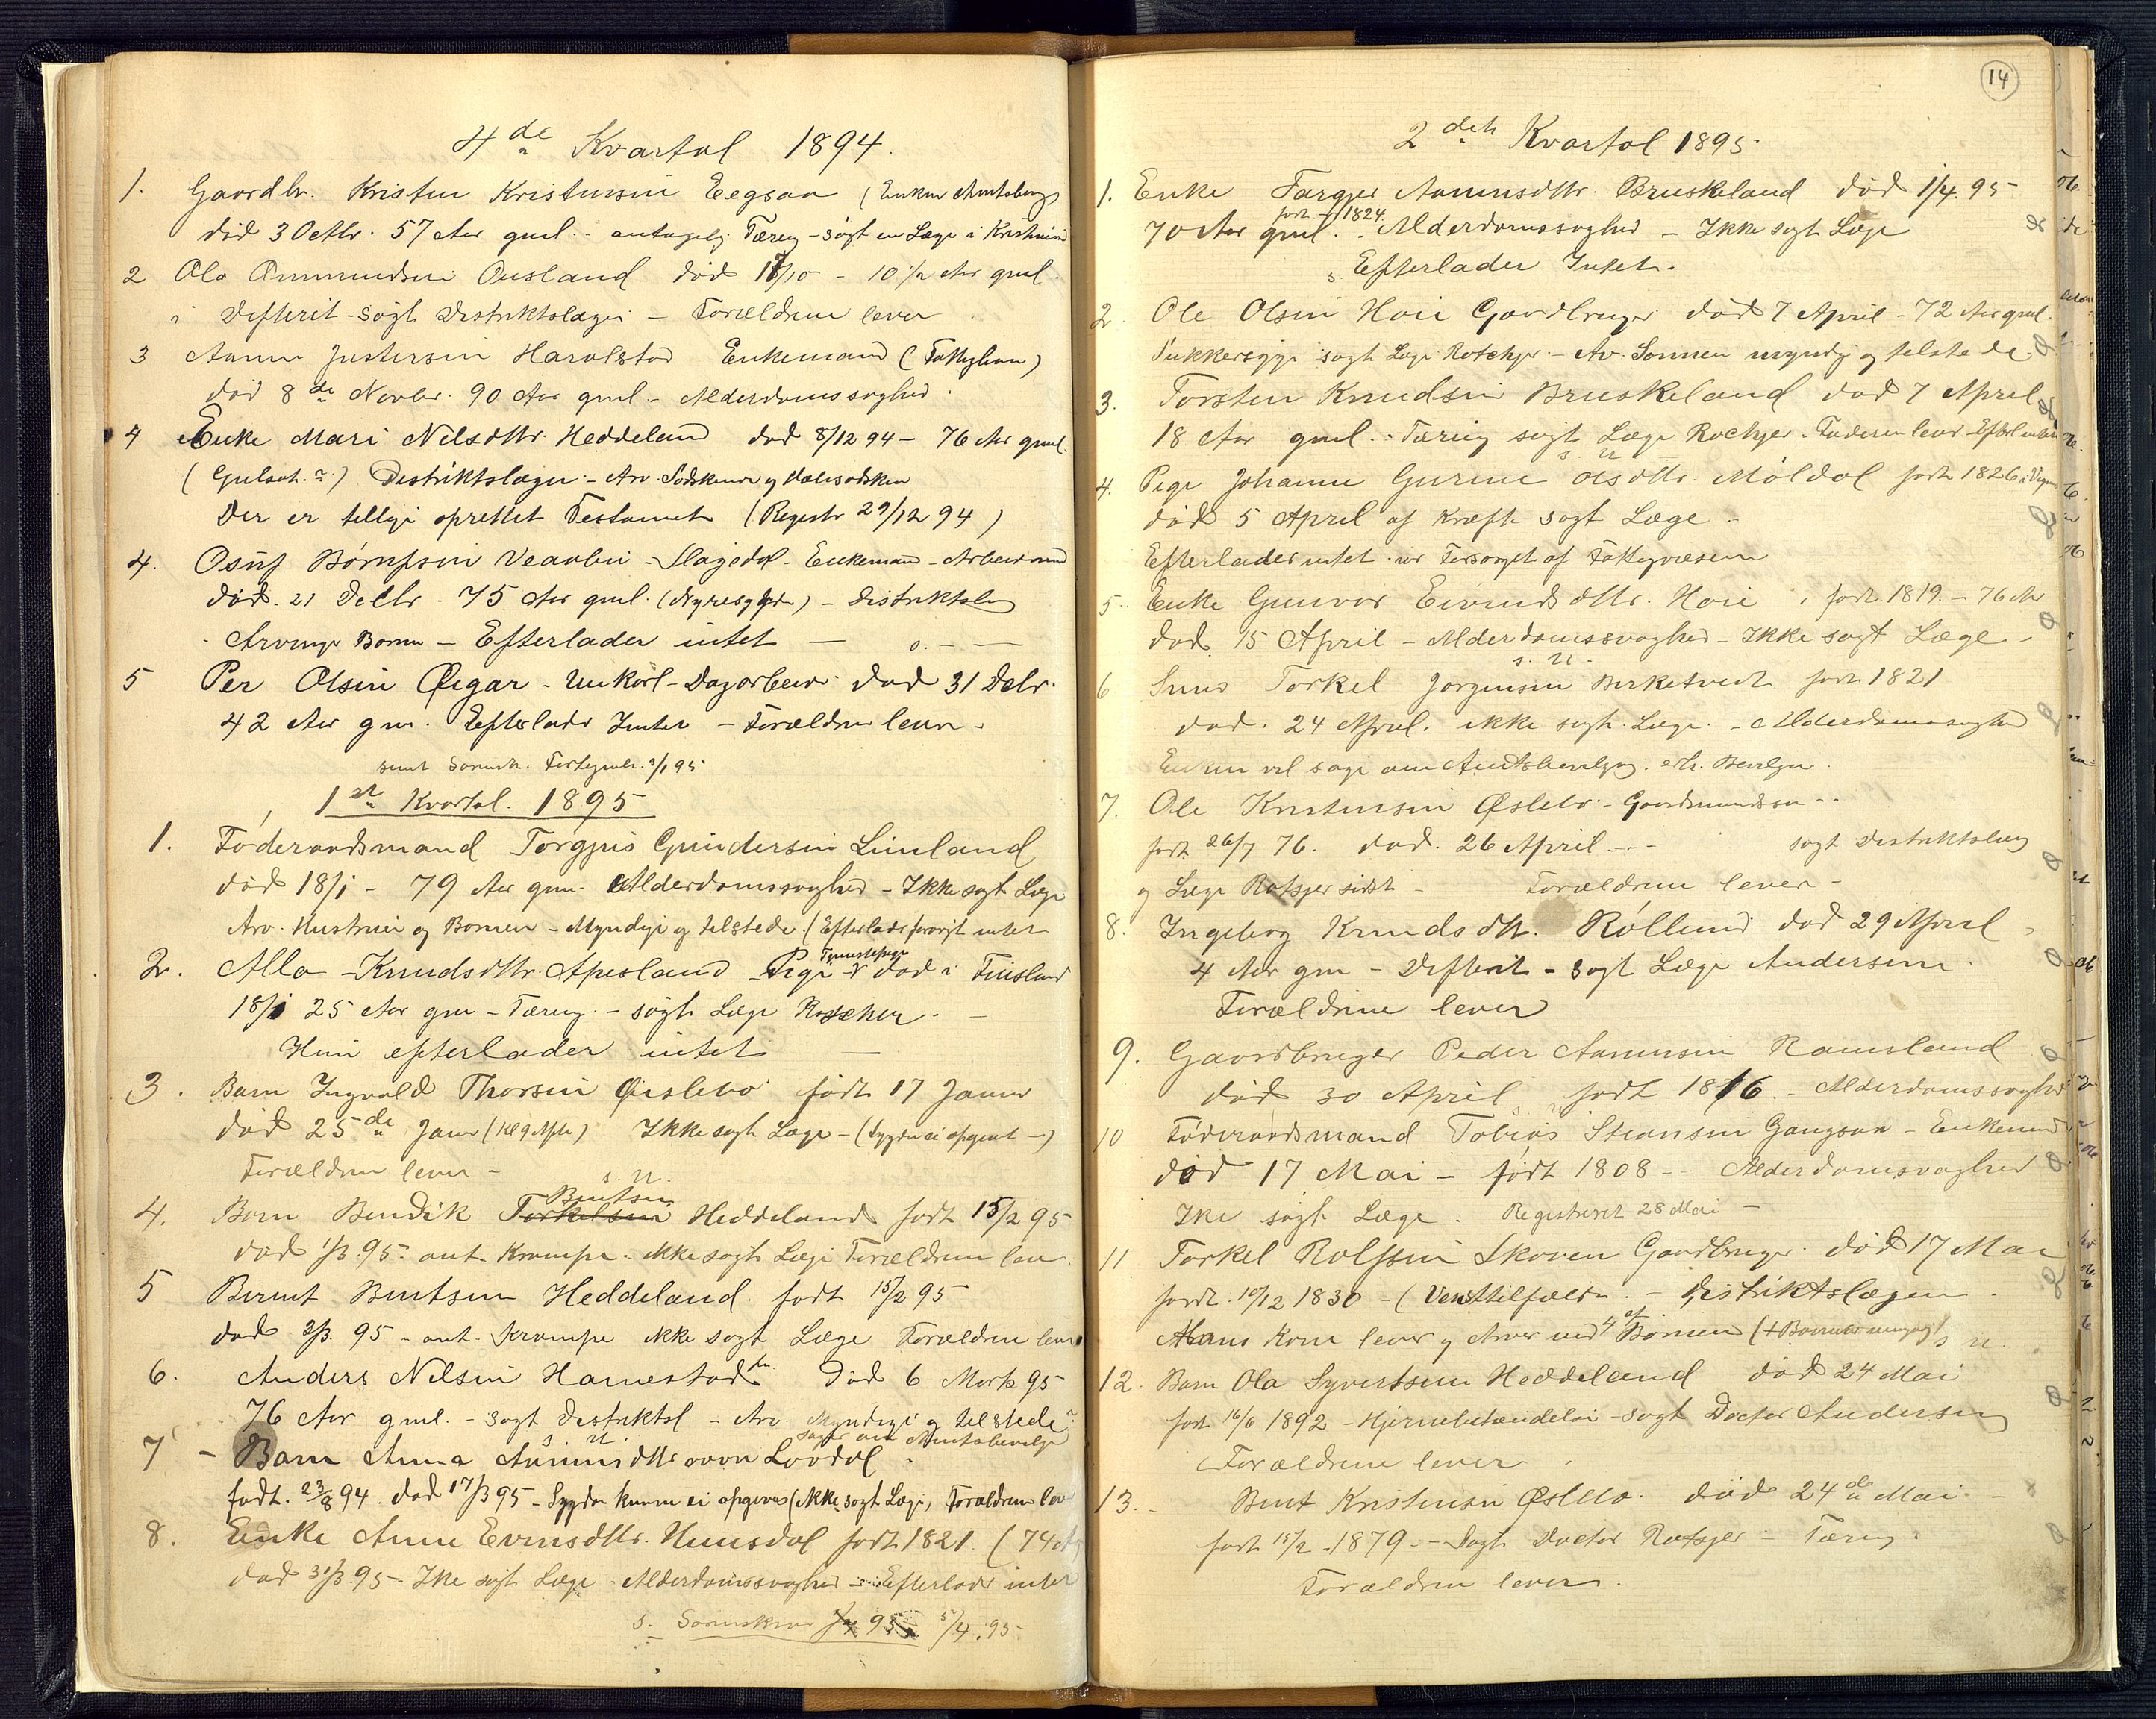 4de Kvartal 1894.
1. Gaardbr. Kristen Kristensen Eegsaa (Enken Amtsbev
død 3 Octbr. 57 Aar gml. - antagelig Tæring - søgt en Læge i Kristians
2 Ola Ommundsen Ousland død 17/10 - 10 1/2 Aar gml.
i Difterit - søgt Distriktslægen - Forældrene lever
3 Aanen Justersen Haralstad Enkemand (Fattiglem)
død 8de Novbr. 90 Aar gml. - Alderdomssvaghed.
4 Enke Mari Nilsdttr. Heddeland død 8/12 94 - 76 Aar gml.
(Gulsot.) Distriktslægen - Arv. Sødskende og Halvsødsken
Der er tillige oprettet Testament (Registr 29/12 94)
4. Osuf Børufsen Slagedal - Enkemand - Arbeidsmand
død. 21 Decbr. 75 Aar gml. (Nyresygdom) - Distriktslæg
Arvinge Børn - Efterlader intet — o. —
5 Per Olsen Øigar - Unkarl - Dagarbeid. død 31 Decbr.
42 Aar gm. Efterlader Intet - Forældrene lever.
sendt Sorensk. Fortegnelse 2/1 95
1ste Kvartal. 1895
1. Føderaadsmand Torgjus Gundersen Linland
død 18/1 - 79 Aar gm. Alderdomssvaghed - Ikke søgt Læge
Arv. Hustruen og Børnene - Myndige og tilstede (Efterlader forøvrigt intet
2. Alla Knudsdttr. Apesland Pige Tjenestepige død i Finsland
18/1 25 Aar gm - Tæring - søgt Læge Rotscher. -
Hun efterlader intet —
3. Barn Ingvald Thorsen Øislebø født 17 Januar
død 25de Januar (Kl 9 Aften) Ikke søgt Læge - (Sygdom ei opgivet -)
Forældrene lever - s. n.
4. Barn Bendik Torkelsen Bentsen Heddeland født 15/2 95
død 1/3 95. ant. Krampe. ikke søgt Læge Forældrene lever.
5 Bernt Bentsen Heddeland født 15/2 95
død 3/3 95 - ant. Krampe ikke søgt Læge Forældrene lever
6. Anders Nilsen Harnestad død 6 Marts 95
76 Aar gml. - søgt Distriktsl - Arv. Myndige og tilstede
s. n. søger om Amtsbevilge
7 - Barn Anna Løvdal.
født. 23/8 94. død 17/3 95 - Sygdom kunne ei opgives (ikke søgt Læge, Forældrene lever
8. Enke Anne Evensdttr. Hunsdal født 1821. (74 A
død 31/3 95 - Ikke søgt Læge - Alderdomssvaghed - Efterlader intet
s. Sorenskriver 95 5/4. 95
14
2det Kvartal 1895
1. Enke Targjer Aanensdttr. Bruskeland død 1/4. 95
70 Aar gml. født 1824. Alderdomssvaghed - Ikke søgt Læge
Efterlader Intet.
2. Ole Olsen Hoie Gaardbruger død 7 April - 72 Aar gml.
Sukkersyge søgt Læge Rotchjer - Arv. Sønnen myndig og tilstede.
3. Torsten Knudsen Bruskeland død 7 April
18 Aar gml. - Tæring søgt Læge Rochjer. Faderen lever - Efterl intet
s. n
4. Pige Johanne Gurine Olsdttr. Møldal født 1826 i Vegus
død 5 April af Kræft søgt Læge -
Efterlader intet. var Forsørget af Fattigvæsen
5. Enke Gunvor Eivindsdttr. Hoie, født 1819 - 76 Aar
død 15 April - Alderdomssvaghed - Ikke søgt Læge -
s. n.
6 Torkel Jørgensen Birketvedt født 1821
død. 24 April. ikke søgt Læge. - Alderdomssvaghed
Enken vil søge om Amtsbevilgn. erh. Bevilgn.
7. Ole Kristensen Øslebø - Gaardmandssøn -
født 26/7 76. død. 26 April --- søgt Distriktslæg
og Læge Rotsjer sidst - Forældrene lever -
8. Ingeborg Knudsdttr. Røllend død 29 April
4 Aar gm - Difterit - søgt Læge Andersen.
Forældrene lever
9. Gaardbruger Peder Aanensen Ramsland
død 30 April født 1816. - Alderdomssvaghed
10 Føderaadsmand Tobias Steansen Gangsaa - Enkemand
død 17 Mai - født 1808 - Alderdomsvaghed
Ike søgt Læge. Registreret 28 Mai -
11 Torkel Rolfsen Skoven Gaardbruger. død 17 Mai
født. 10/12 1830 - ( - Distriktslægen.
Hans Kone lever og Arver med 4 af Børnene s n.
12. Barn Ola Syvertsen Heddeland død 24 Mai
født 16/6 1892 - Hjernebetændelse - søgt Doctor Andersen
Forældrene lever
13. - Bent Kristensen Øslebø. død 24de Mai -
født 15/2 1879 - Søgt Doctor Rotsjer - Tæring
Forældrene lever.